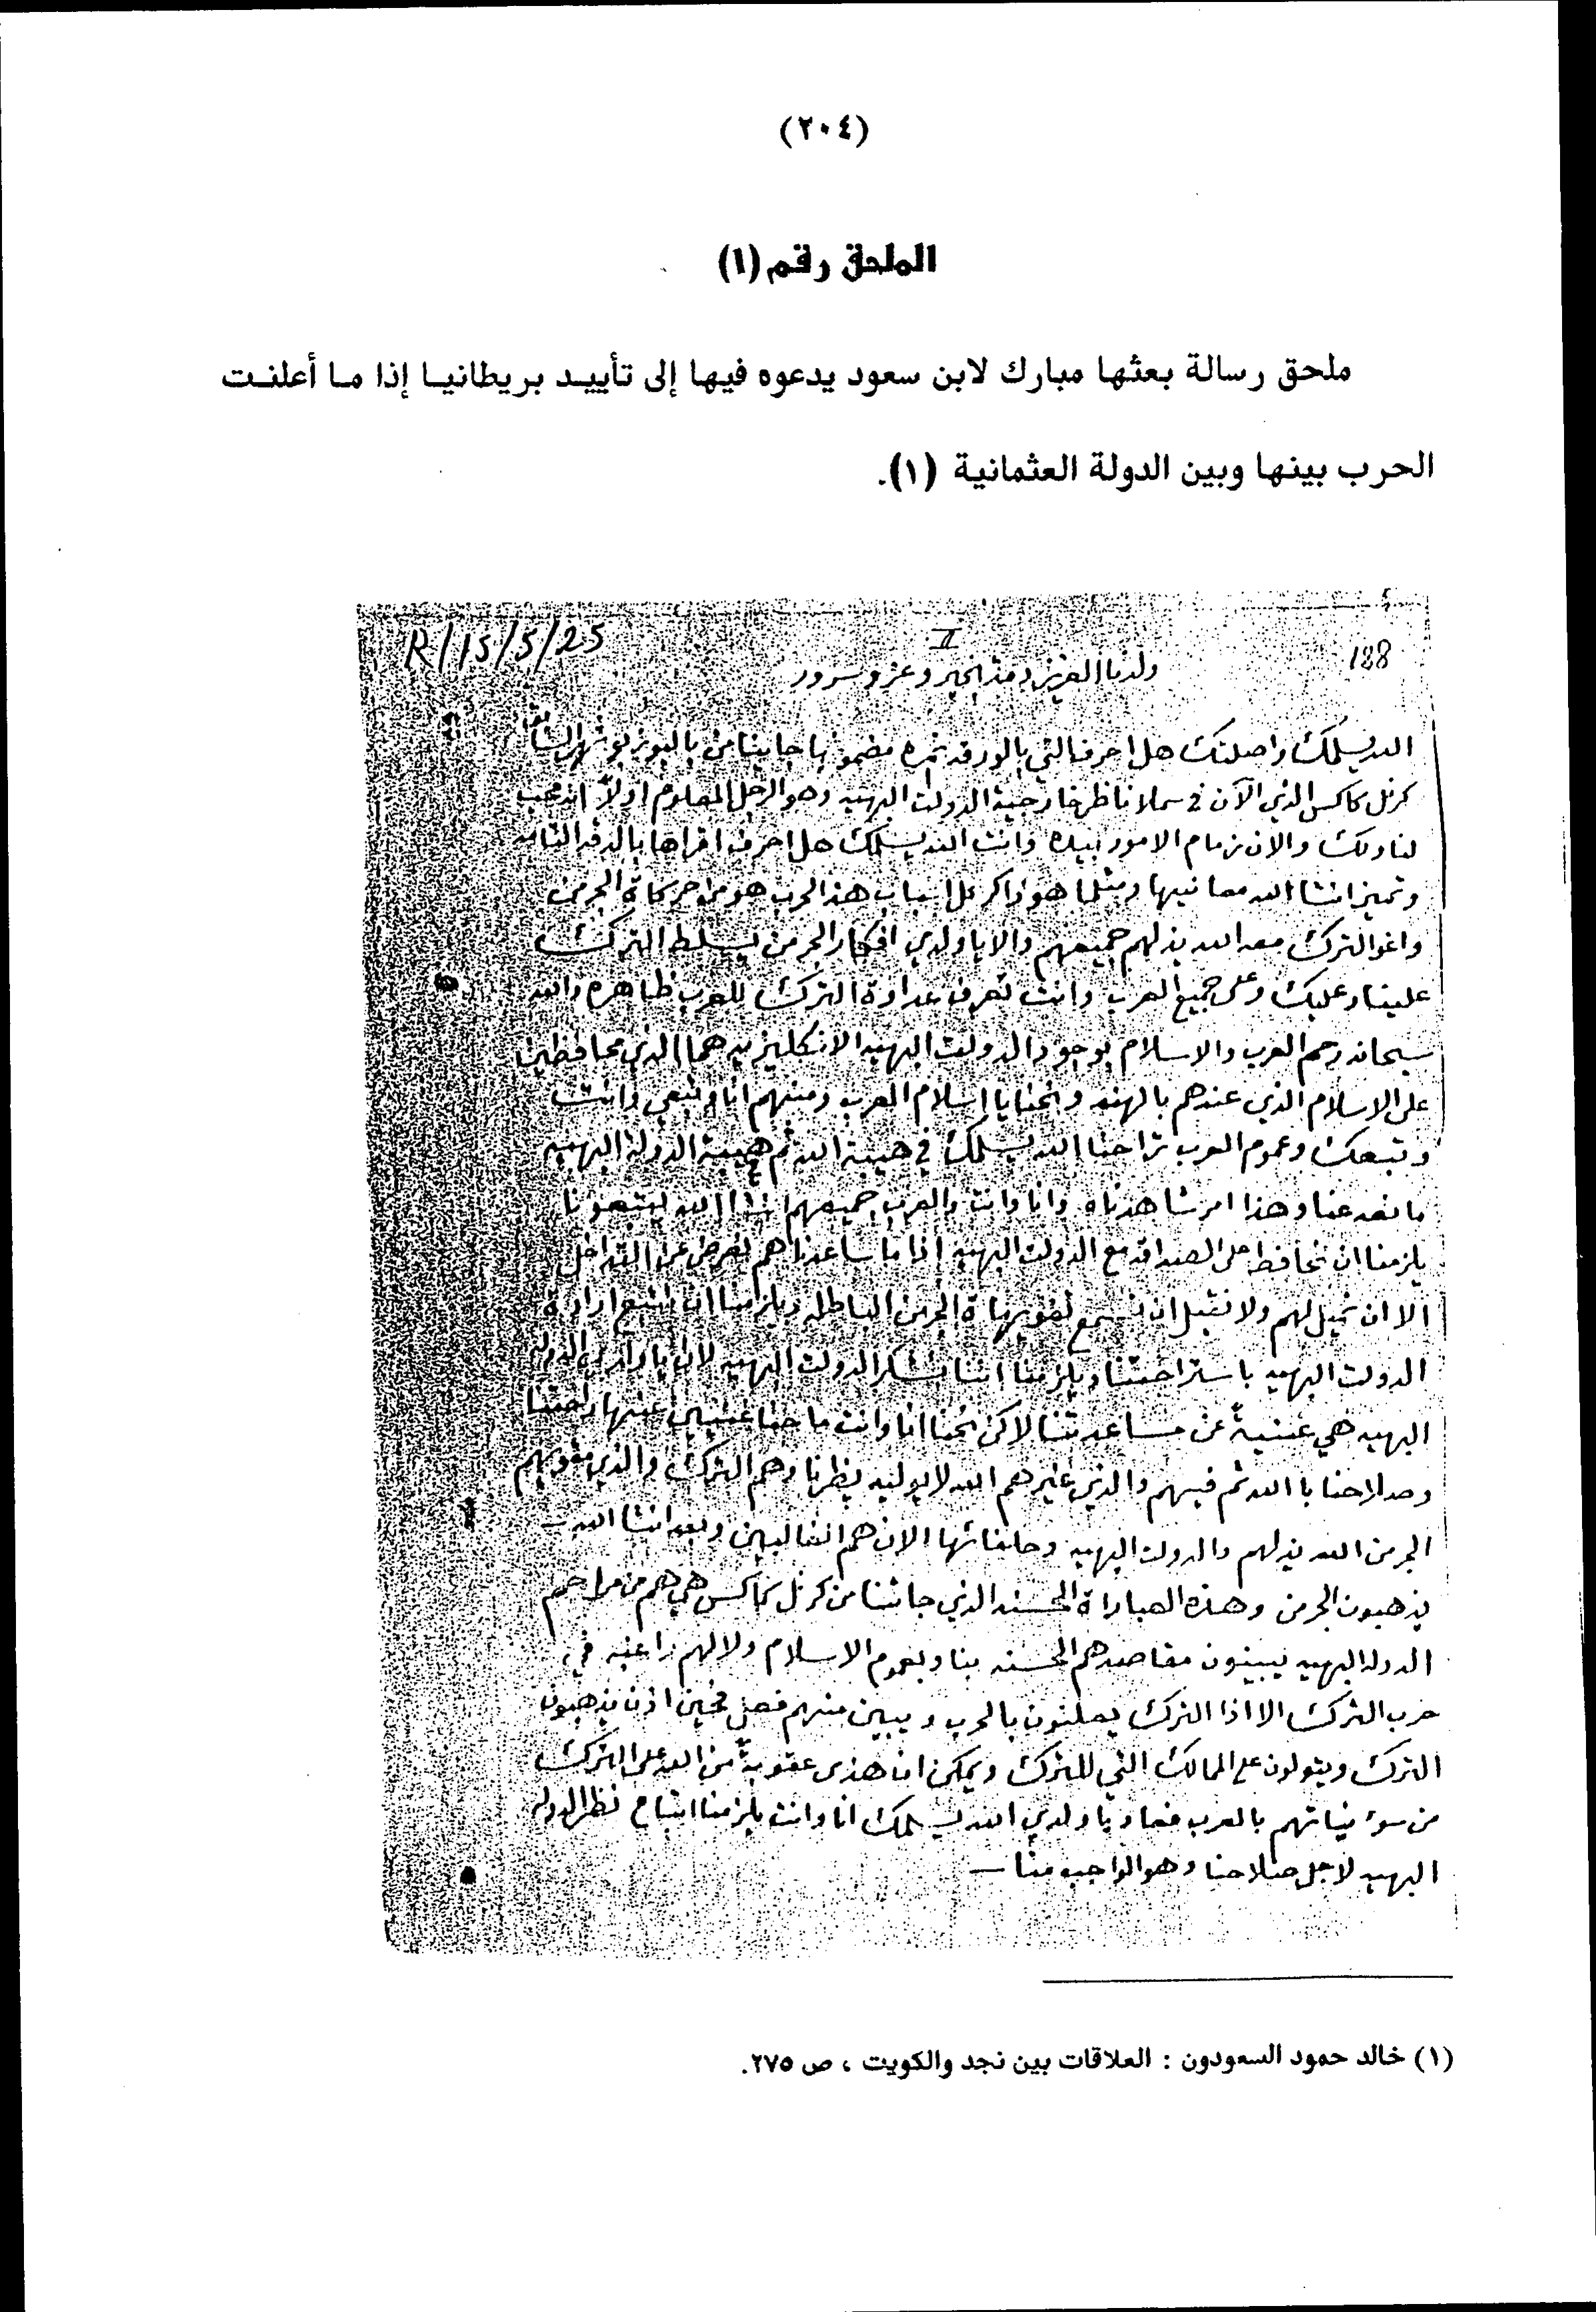 (٢٠٤)
الملحق رقم (١)
ملحق رسالة بعثها مبارك لابن سعود يدعوه فيها إلى تأييد بريطانيا إذا ما أعلنت
الحرب بينها وبين الدولة العثمانية (١).
R/15/5/25
II
188
ولدنا العزيز دمت بخير وعز وسرور
الله يسلمك واصلتك هل احرف التي بالورقه نمره مضمونها جابينا من باليوز بوشهر
كرنل كاكس الذي الآن في سملا ناظر خارجية الدولت البهيه وهو الرجل المعلوم اولاً انه محب
لنا ولك والان زمام الامور بيده وانت الله يسلمك هل احرف اقراها بالدقه التامه
وتميز انشا الله معانيها ومثلما هو ذاكر عل اسباب هذا الحرب هو من حركاة الجرمن
واغو الترك معه الله يذلهم جميعهم والا يا ولدي افكار الجرمن يسلط الترك
علينا وعليك وعلى جميع العرب وانت تعرف عداوة الترك للعرب ظاهره والله
سبحانه رحم العرب والاسلام بوجود الدولت البهيه الانكليزيه هما الذي محافظين
على الاسلام الذي عندهم بالهند ونحنا يا اسلام العرب ومنهم انا وتبعي وانت
وتبعك وعموم العرب ترا حنا الله يسلمك في هيبة الله ثم هيبة الدولة البهيه
ما نعد عنا وهذا امر شاهدناه وانا وانت والعرب جميعهم انشا الله يتبعونا
يلزمنا ان نحافظ على الصداقه مع الدولت البهيه اذا ما ساعدناهم نعرض عن التداخل
الا ان نميل لهم ولا نقبل ان نسمع تمويهاة الجرمن الباطله ويلزمنا ان نتبع ارادة
الدولت البهيه باستراحتنا ويلزمنا اننا نشكر الدولت البهيه لان يا ولدي الدوله
البهيه هي غنيةً عن مساعدتنا لاكن نحنا انا وانت ما حنا غنيين عنها راحتنا
وصلاحنا با الله ثم فيهم والذي غيرهم الله لا يوليه بنظرنا وهم الترك والذي مقويهم
الجرمن الله يذلهم والدولت البهيه وحلفائها الان هم الغالبين وبعد انشا الله
يذهبون الجرمن وهذه العباراة الحسنه الذي جائتنا من كرنل كاكس هي هم من مراحم
الدوله البهيه يبينون مقاصدهم الحسنه بنا وبعموم الاسلام ولا لهم راغبه في
حرب الترك الا اذا الترك يعلنون بالحرب ويبين منهم فصل فحين اذن يذهبون
الترك ويتولون على الممالك التي للترك ويمكن ان هذى عقوبةً من الله على الترك
من سوء نياتهم بالعرب يا ولدي الله يسلمك انا وانت يلزمنا اتباع نظر الدوله
البهيه لاجل صلاحنا وهو الواجب منا
(١) خالد حمود السعودون : العلاقات بين نجد والكويت ، ص ٢٧٥.